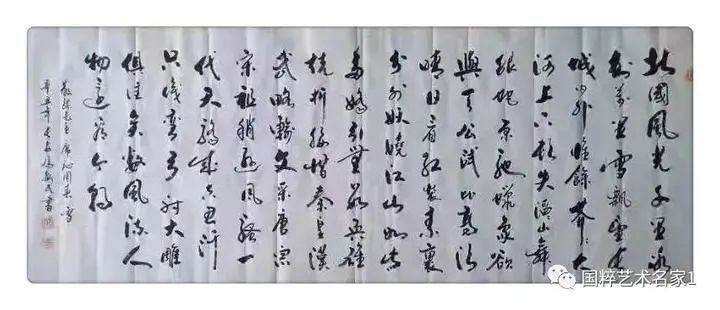 北國風光千里冰
封萬里雪飄望長
城内外惟餘莽莽大
河上下頓失滔滔山舞
銀蛇原馳蠟象欲
與天公試比高須
晴日看紅裝素裹
分外妖嬈江山如此
多嬌引無數英雄
競折腰惜秦皇漢
武略輸文采唐宗
宋祖稍遜風騷一
代天驕成吉思汗
只識彎弓射大雕
俱往矣數風流人
物還看今朝
敬録毛主席沁園春雪
辛丑年書
国粹艺术名家1